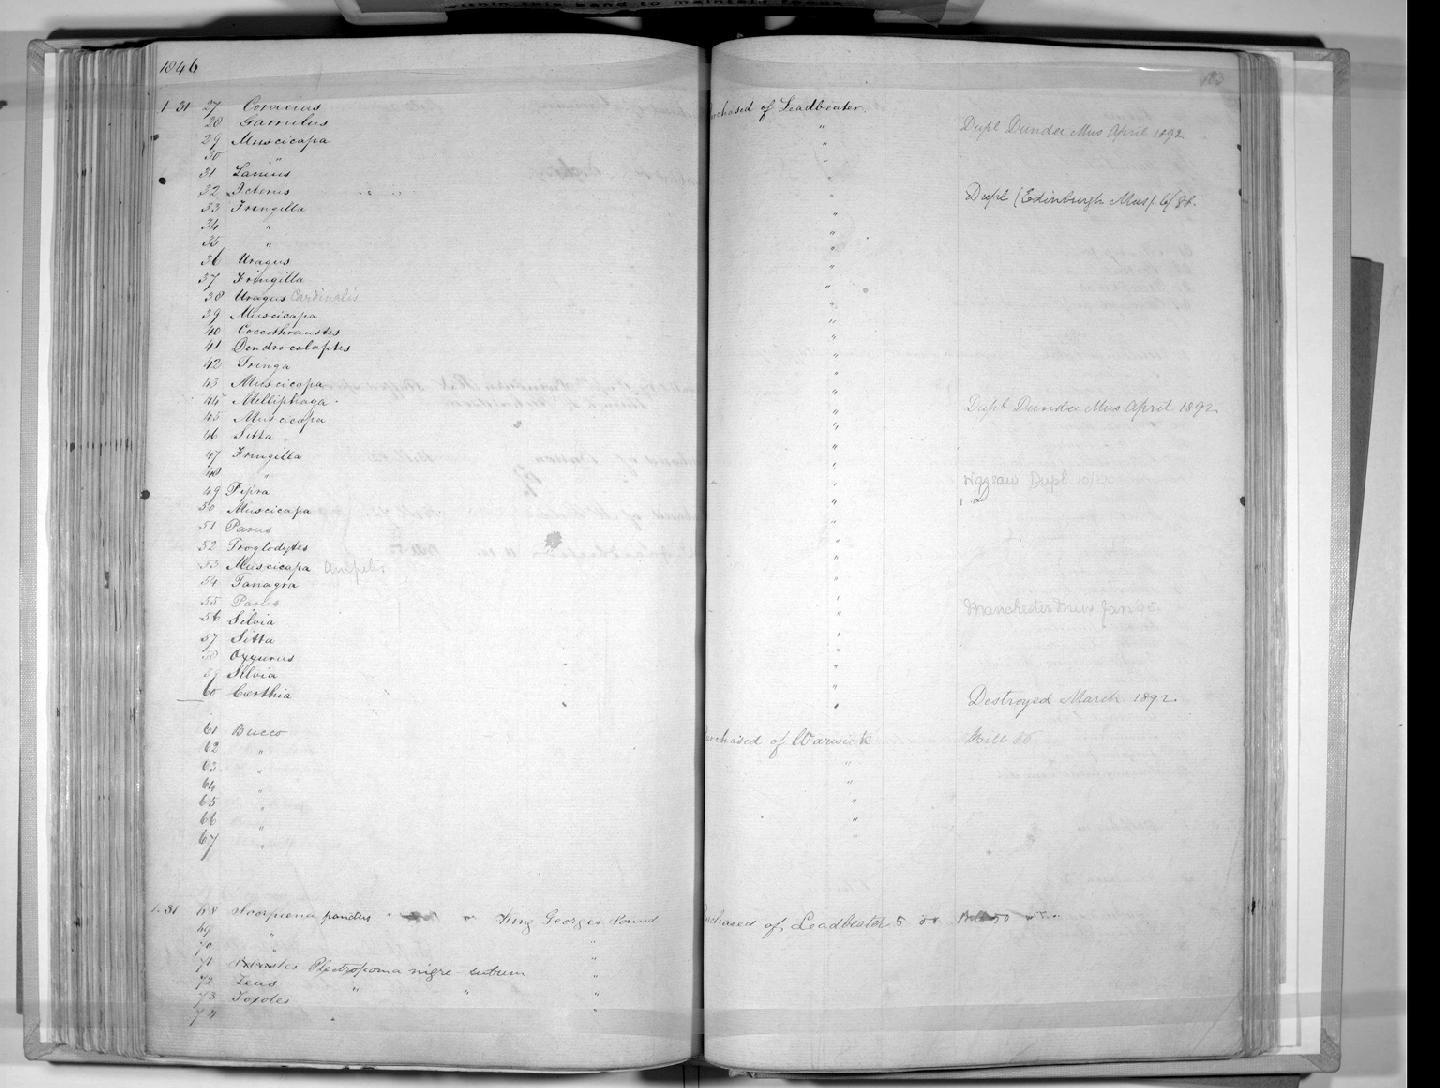 within this band to maintain focus
1846
1 31 27 Corvinus Purchased of Leadbeater.
28 Garrulus "
29 Muscicapa " Dupl Dundee Mus April 1892
30 " "
31 Lanius "
32 Icterus "
33 Fringilla " Dupl (Edinburgh Mus)
34 " "
35 " "
36 Uragus "
37 Fringilla "
38 Uragus Cardinalis "
39 Muscicapa "
40 Coccothraustes "
41 Dendrocolaptes "
42 Tringa "
43 Muscicapa "
44 Melliphaga "
45 Muscicapa " Dupl Dundee Mus April 1892
46 Sitta "
47 Fringilla "
48 " "
49 Pipra " Dupl
50 Muscicapa "
51 Parus "
52 Troglodytes "
53 Muscicapa Ampelis "
54 Tanagra "
55 Parus "
56 Silvia " Manchester Mus
57 Sitta "
58 Oxyurus "
59 Silvia "
60 Certhia " Destroyed March 1892.
61 Bucco Purchased of Warwick
62 " "
63 " "
64 " "
65 " "
66 " "
67 "
1.31 68 Scorpaena pandus King Georges Sound Purchased of Leadbeater
69 "
70 " "
71 Plectropoma nigro-rubrum "
72 Zeus " " "
73 Toxotes "
74 " "